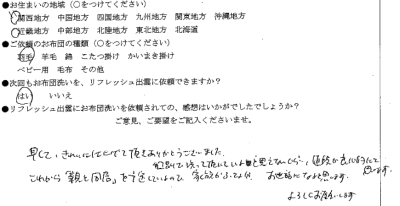 ●お住まいの地域（○をつけてください）
関西地方 中国地方 四国地方 九州地方 関東地方 沖縄地方
近畿地方 中部地方 北陸地方 東北地方 北海道
●ご依頼のお布団の種類（○をつけてください）
羽毛 羊毛 綿 こたつ掛け かいまき掛け
ベビー用 毛布 その他
●次回もお布団洗いを、リフレッシュ出雲に依頼できますか？
はい いいえ
●リフレッシュ出雲にお布団洗いを依頼されての、感想はいかがでしたでしょうか？
ご意見、ご要望をご記入くださいませ。
早くて、きれいに して頂きありがとうございました。
これから「親と同居」を予定していよので 家族が お世話になると思います。
よろしくお願いします